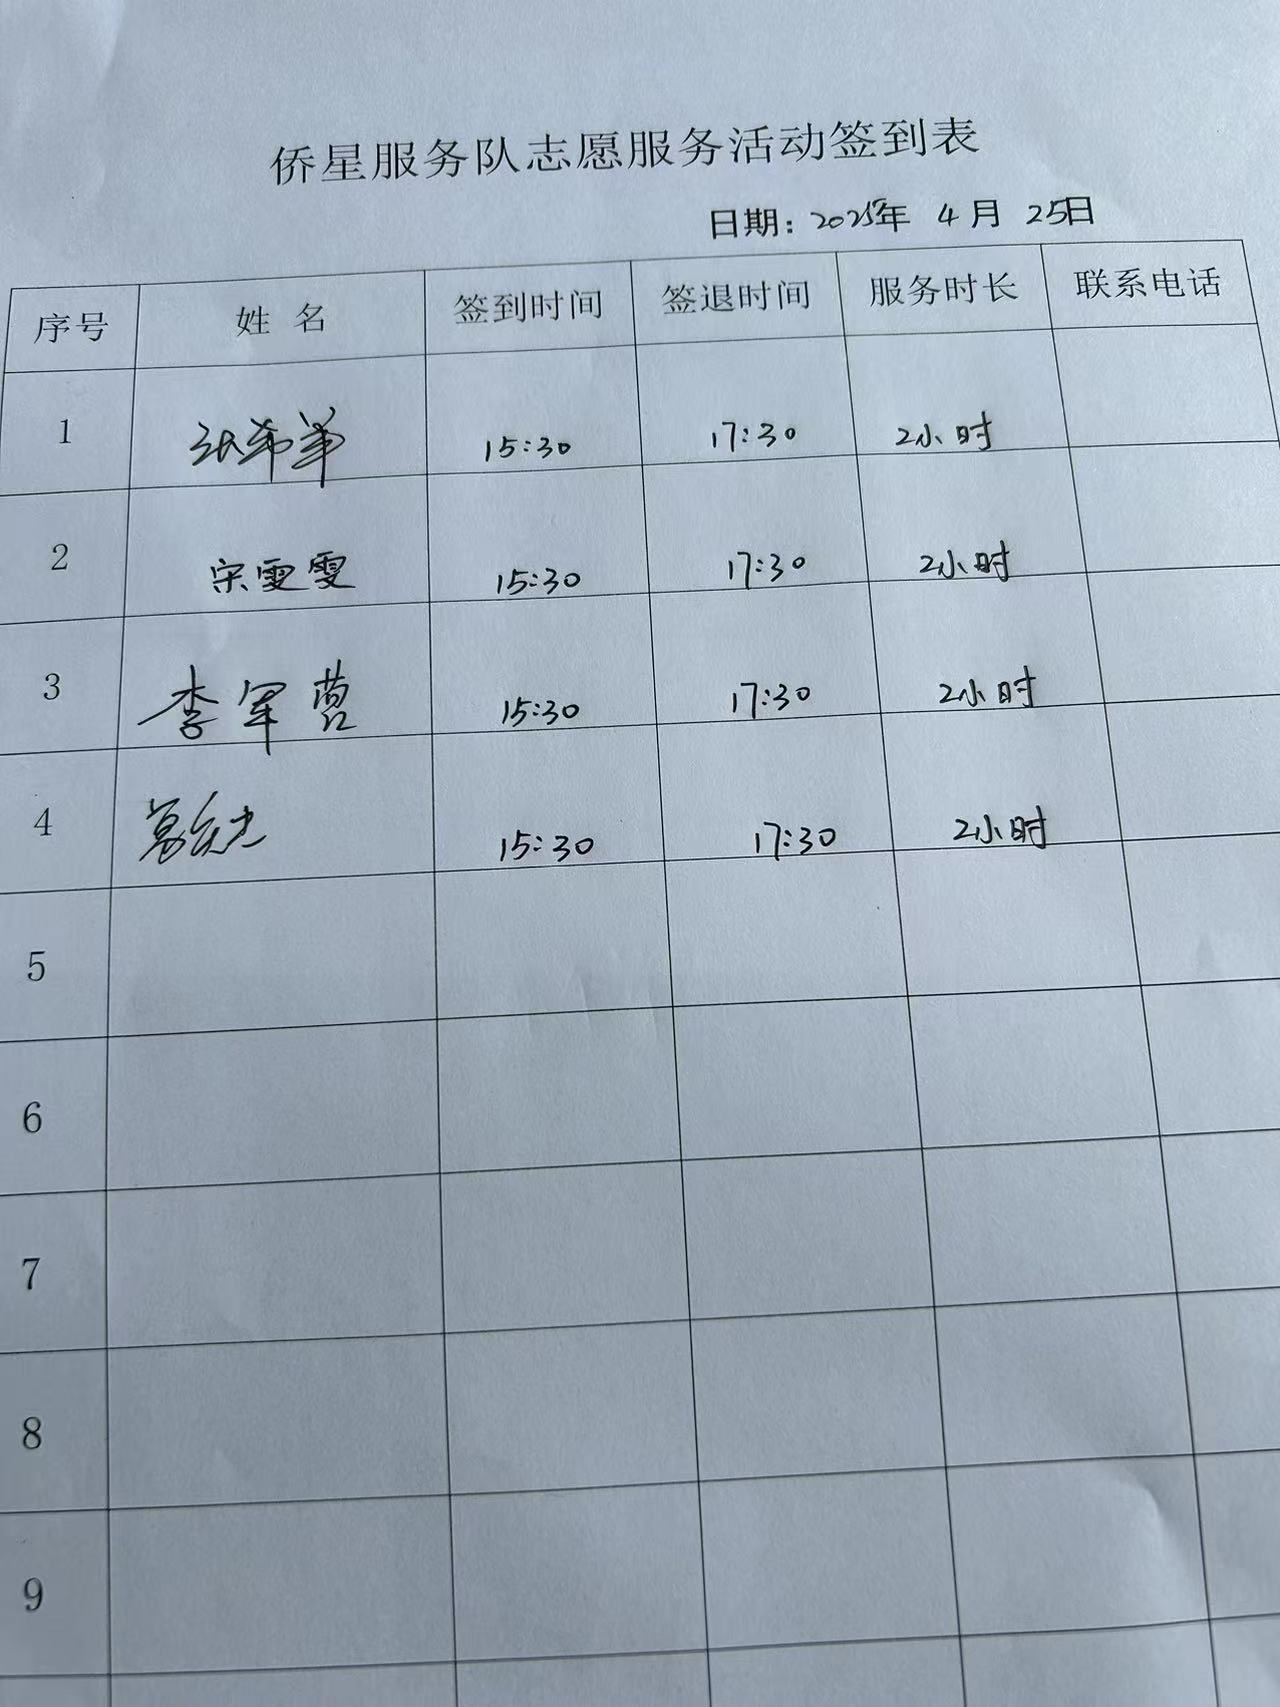 侨星服务队志愿服务活动签到表
日期：2025年 4月 25日
序号 姓名 签到时间 签退时间 服务时长 联系电话
1 张希羊 15:30 17:30 2小时
2 宋雯雯 15:30 17:30 2小时
3 李军 15:30 17:30 2小时
4 15:30 17:30 2小时
5
6
7
8
9